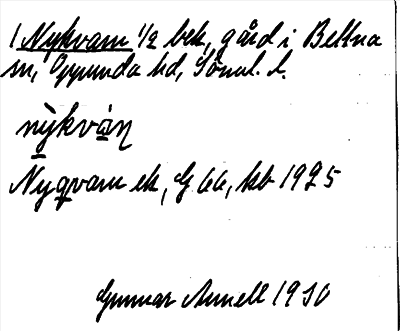 1 Nykvarn 1/2 bek, gård i Bettna
sn, Oppunda hd, Sörml. l.
nỳkvàṇ
Nyqvarn ek, G 66, kb 1925
Gunnar Annell 1930